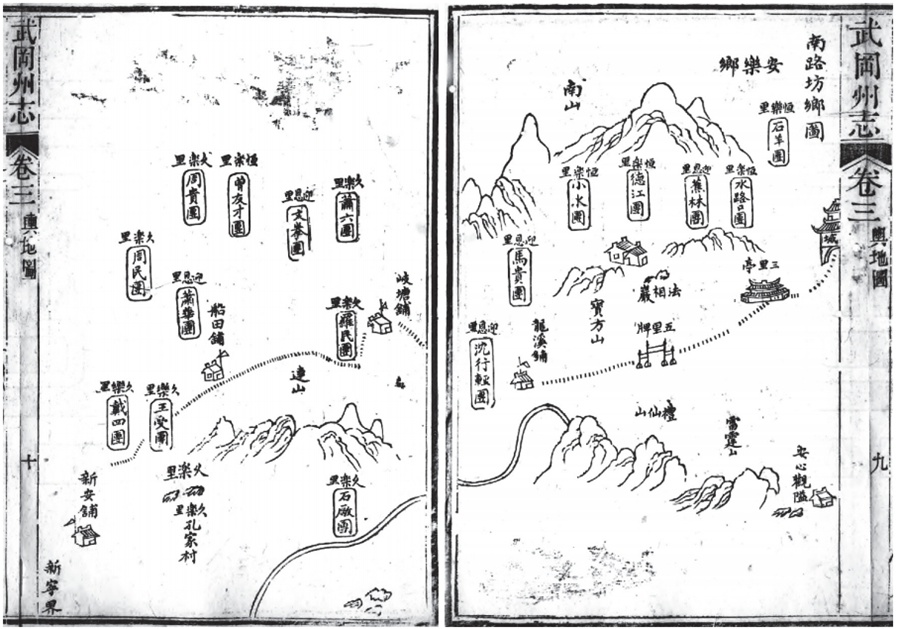 武岡州志
卷三
輿地圖
九
南路坊鄉圖
安樂鄉
南山
恆樂里
石羊圖
恆樂里
水路口圖
迎恩里
蕉林圖
恆樂里
德江圖
恆樂里
小水圖
城
三里亭
法相巖
寶方山
迎恩里
馬貴圖
五里牌
龍溪鋪
迎恩里
沈行毅圖
禮仙山
雷霆山
安心觀隘
武岡州志
卷三
輿地圖
十
久樂里
蕭六圖
迎恩里
文奉圖
恆樂里
曾友才圖
久樂里
周貴圖
久樂里
周民圖
迎恩里
蕭華圖
岐塘鋪
久樂里
羅民圖
船田鋪
連山
久樂里
王受圖
久樂里
戴四圖
久樂里
石廠圖
久樂里
久樂里
孔家村
新安鋪
新寧界